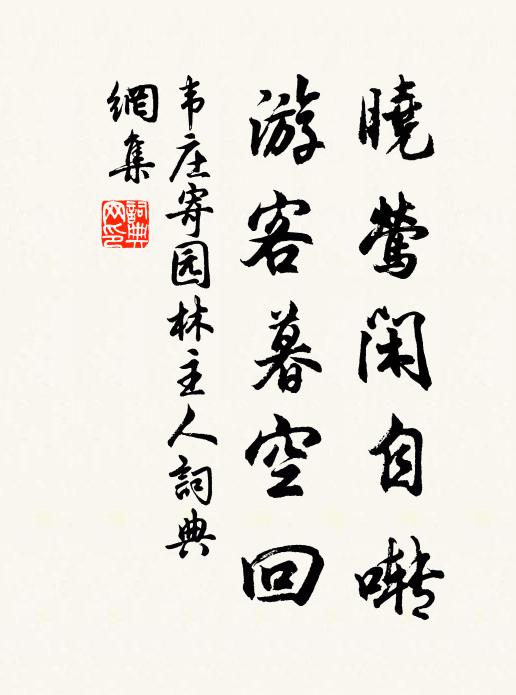 曉鶯閑自囀
游客暮空回
韦庄寄园林主人詞典
網集
詞典網印